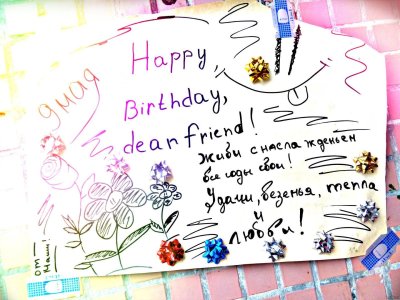 9 мая
Happy
Birthday,
dear friend!
Живи с наслажденьем
все годы свои!
Удачи, везенья, тепла
и
любви!
от
Маши!